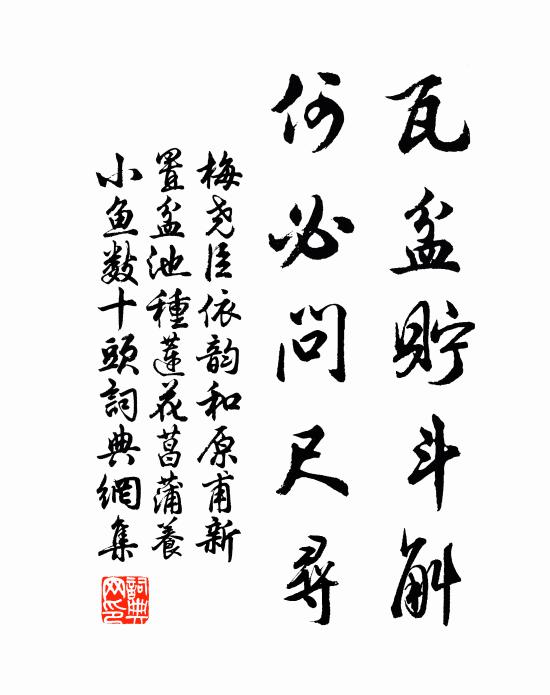 瓦盆貯斗斛
何必問尺尋
梅尧臣依韵和原甫新
置盆池種蓮花菖蒲養
小魚數十頭詞典網集